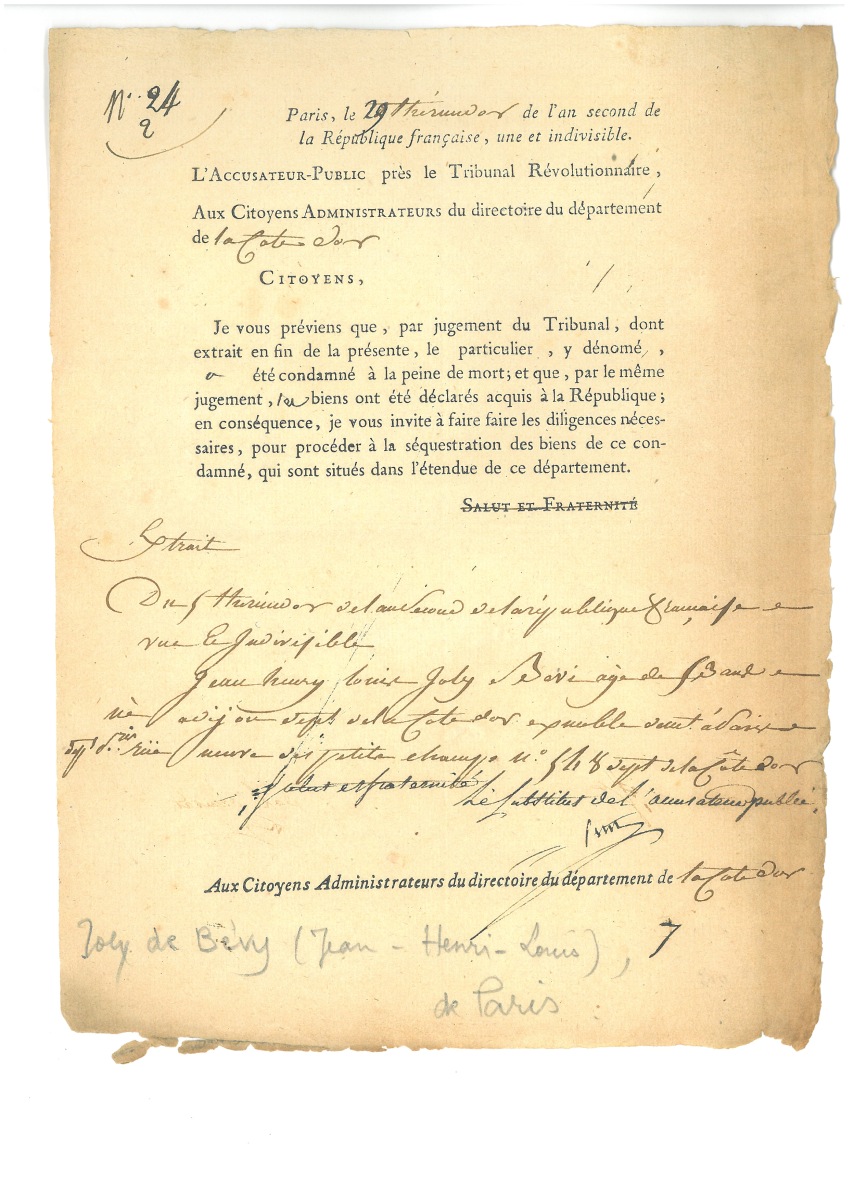 N.° 24
2
Paris, le 29 thermidor de l'an second de
la République française, une et indivisible.
L'Accusateur-Public près le Tribunal Révolutionnaire,
Aux Citoyens Administrateurs du directoire du département
de la Cote dor
Citoyens,
Je vous préviens que, par jugement du Tribunal, dont
extrait en fin de la présente, le particulier, y dénomé,
a été condamné à la peine de mort; et que, par le même
jugement, ses biens ont été déclarés acquis à la République;
en conséquence, je vous invite à faire faire les diligences néces-
saires, pour procéder à la séquestration des biens de ce con-
damné, qui sont situés dans l'étendue de ce département.
Salut et Fraternité
Extrait
Du 5 thermidor de lan Second de la république française
une et Indivisible
Jean henry louis Joly de Bevi agé de ans
né a dijon dept de la Cote dor ex noble demt à Paris
rüe neuve des petits champs n.° 548 dept de la Côte dor
Salut et fraternité Le Substitut de l'accusateur public
Aux Citoyens Administrateurs du directoire du département de la Cote dor
Joly de Bévy (Jean-Henri-Louis), 7
de Paris